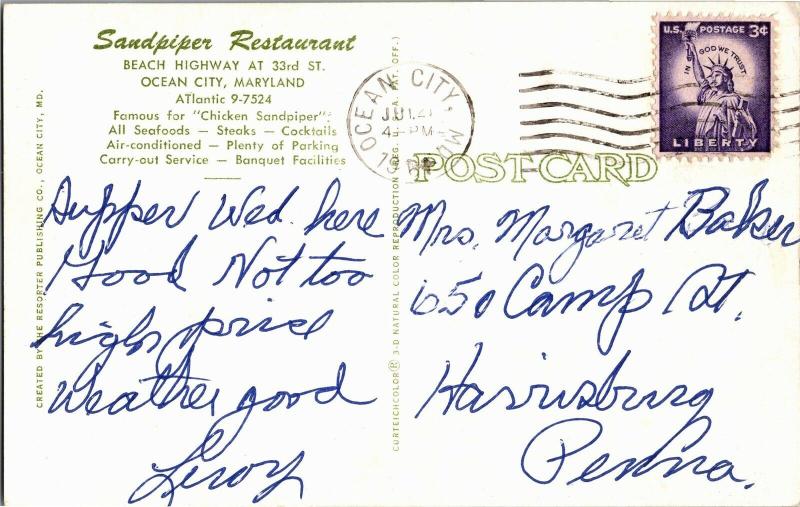 Sandpiper Restaurant
BEACH HIGHWAY AT 33rd ST.
OCEAN CITY, MARYLAND
ATlantic 9-7524
Famous for "Chicken Sandpiper"
All Seafoods — Steaks — Cocktails
Air-conditioned — Plenty of Parking
Carry-out Service — Banquet Facilities
CREATED BY THE RESORTER PUBLISHING CO., OCEAN CITY, MD.
Supper Wed. here
Good Not too
high price
Weather good
Leroy
CURTEICHCOLOR® 3-D NATURAL COLOR REPRODUCTION (REG. U.S.A. PAT. OFF.)
OCEAN CITY, MD.
4 PM
POST CARD
U.S. POSTAGE 3¢
IN GOD WE TRUST
LIBERTY
Mrs. Margaret Baker
650 Camp St.
Harrisburg
Penna.